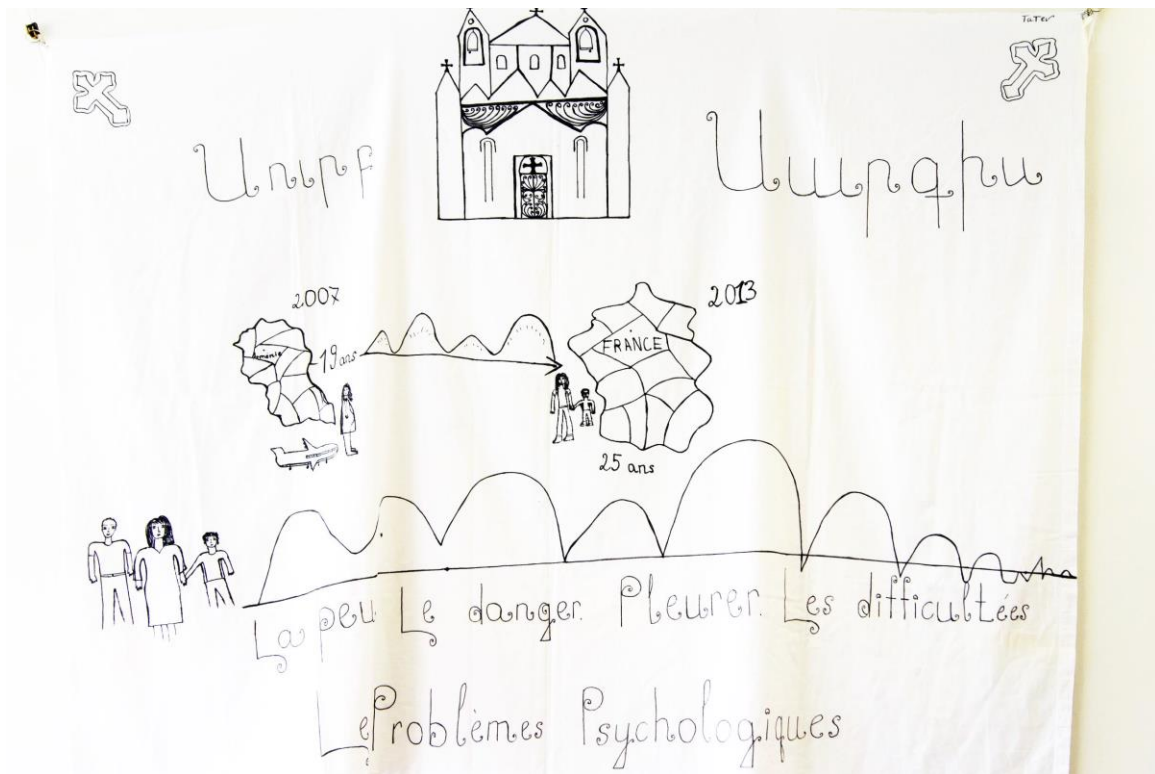 TaTev
Սուրբ Սարգիս
2007
2013
19 ans
FRANCE
25 ans
La peu Le danger. Pleurer. Les difficultées
Le Problèmes Psychologiques